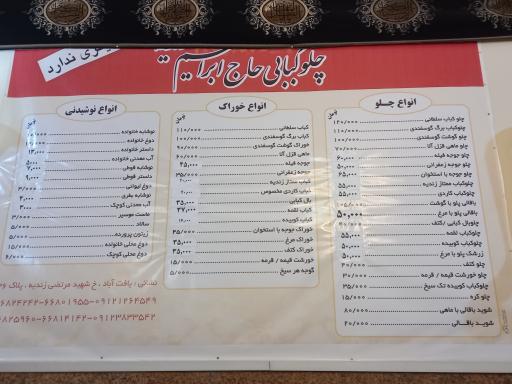 چلوکبابی حاج ابراهیم
ندارد
انواع چلو
تومن
چلو کباب سلطانی ........ ۱۲۰/۰۰۰
چلوکباب برگ گوسفندی ........ ۱۱۰/۰۰۰
چلو گوشت گوسفندی ........ ۱۰۰/۰۰۰
چلو ماهی قزل آلا ........ ۷۰/۰۰۰
چلو جوجه فیله ........ ۶۰,۰۰۰
چلو جوجه زعفرانی ........ ۵۰,۰۰۰
چلو جوجه با استخوان ........ ۶۵,۰۰۰
چلوکباب ممتاز زندیه ........ ۵۵,۰۰۰
چلوکباب کاردی
باقالی پلو با گوشت ........ ۱۰۵/۰۰۰
باقالی پلو با مرغ ........ ۵۰,۰۰۰
چلوبال کبابی /کتف
چلوکباب لقمه ........ ۵۵,۰۰۰
چلوکباب کوبیده ........ ۵۰,۰۰۰
زرشک پلو با مرغ ........ ۵۰,۰۰۰
چلو کتف
چلو خورشت قیمه / قرمه ........ ۳۰/۰۰۰
چلوکباب کوبیده تک سیخ ........ ۳۵/۰۰۰
چلو کره ........ ۱۵/۰۰۰
شوید باقالی با ماهی ........ ۸۰/۰۰۰
شویـد باقـالی ........ ۲۰/۰۰۰
انواع خوراک
تومن
کباب سلطانی ........ ۱۱۰/۰۰۰
کباب برگ گوسفندی ........ ۱۰۰/۰۰۰
خوراک گوشت گوسفندی ........ ۹۰/۰۰۰
ماهی قزل آلا ........ ۶۰/۰۰۰
جوجه فیله ........ ۴۵,۰۰۰
جوجه زعفرانی ........ ۳۵/۰۰۰
کباب ممتاز زندیه
کباب کاردی مخصوص
بال کبابی ........ ۳۵,۰۰۰
کباب لقمه
کباب کوبیده
خوراک جوجه با استخوان ........ ۴۵,۰۰۰
خوراک مرغ ........ ۳۵,۰۰۰
خوراک کتف ........ ۳۵,۰۰۰
خورشت قیمه / قرمه ........ ۱۵/۰۰۰
گوجه هر سیخ ........ ۵/۰۰۰
انواع نوشیدنی
تومن
نوشابه خانواده
دوغ خانواده
دلستر خانواده
آب معدنی خانواده ........ ۵,۰۰۰
نوشابه قوطی ........ ۷,۰۰۰
دلستر قوطی ........ ۹,۰۰۰
دوغ لیوانی ........ ۳/۰۰۰
نوشابه بطری ........ ۴,۰۰۰
آب معدنی کوچک ........ ۳,۰۰۰
ماست موسیر ........ ۳/۰۰۰
سالاد ........ ۵/۰۰۰
زیتون پرورده ........ ۵/۰۰۰
دوغ محلی خانواده ........ ۱۵/۰۰۰
دوغ محلی کوچک ........ ۶/۰۰۰
نشـانی : یافت آباد ، خ شهید مرتضی زندیه ، پلاک
۶۶۸۰۱۹۵۵-۰۹۱۲۱۲۶۴۵۴۹
۶۶۸۱۴۱۴۲-۰۹۱۲۳۸۳۳۵۴۲